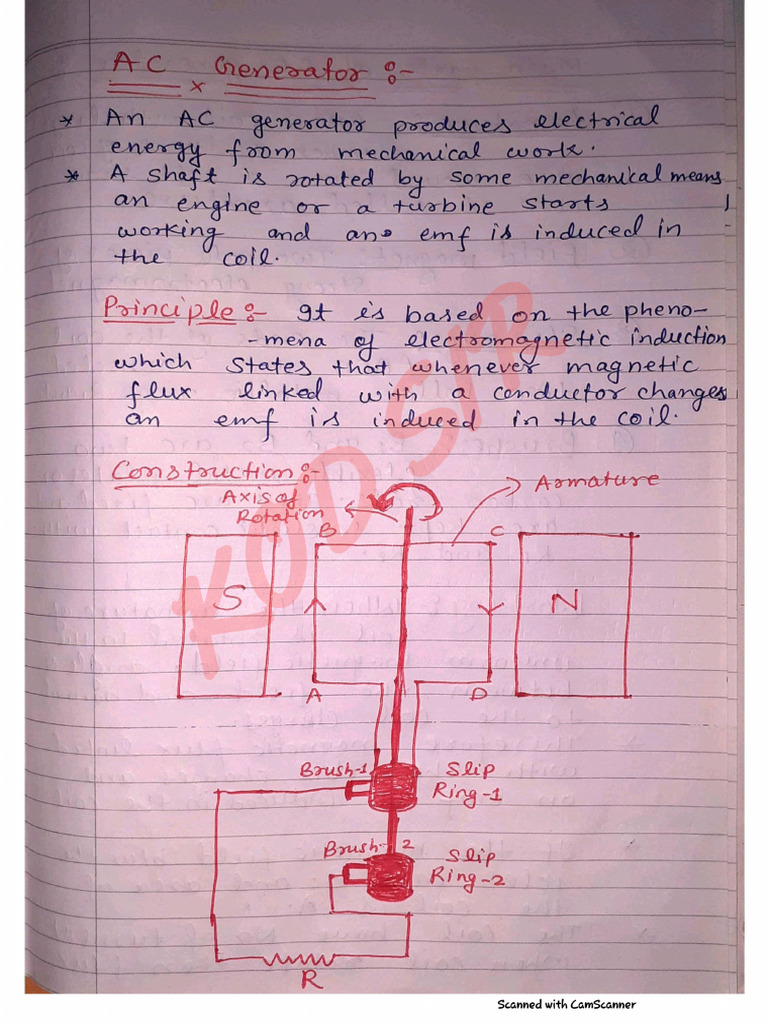 AC Generator :-
* An AC generator produces electrical
energy from mechanical work.
* A shaft is rotated by some mechanical means
an engine or a turbine starts
working and an emf is induced in
the coil.
Principle :- It is based on the pheno-
-mena of electromagnetic induction
which states that whenever magnetic
flux linked with a conductor changes
an emf is induced in the coil.
Construction :-
Axis of
Rotation
Armature
B
C
S
N
A
D
Brush-1
Slip
Ring-1
Brush-2
Slip
Ring-2
R
KOD SIR
Scanned with CamScanner